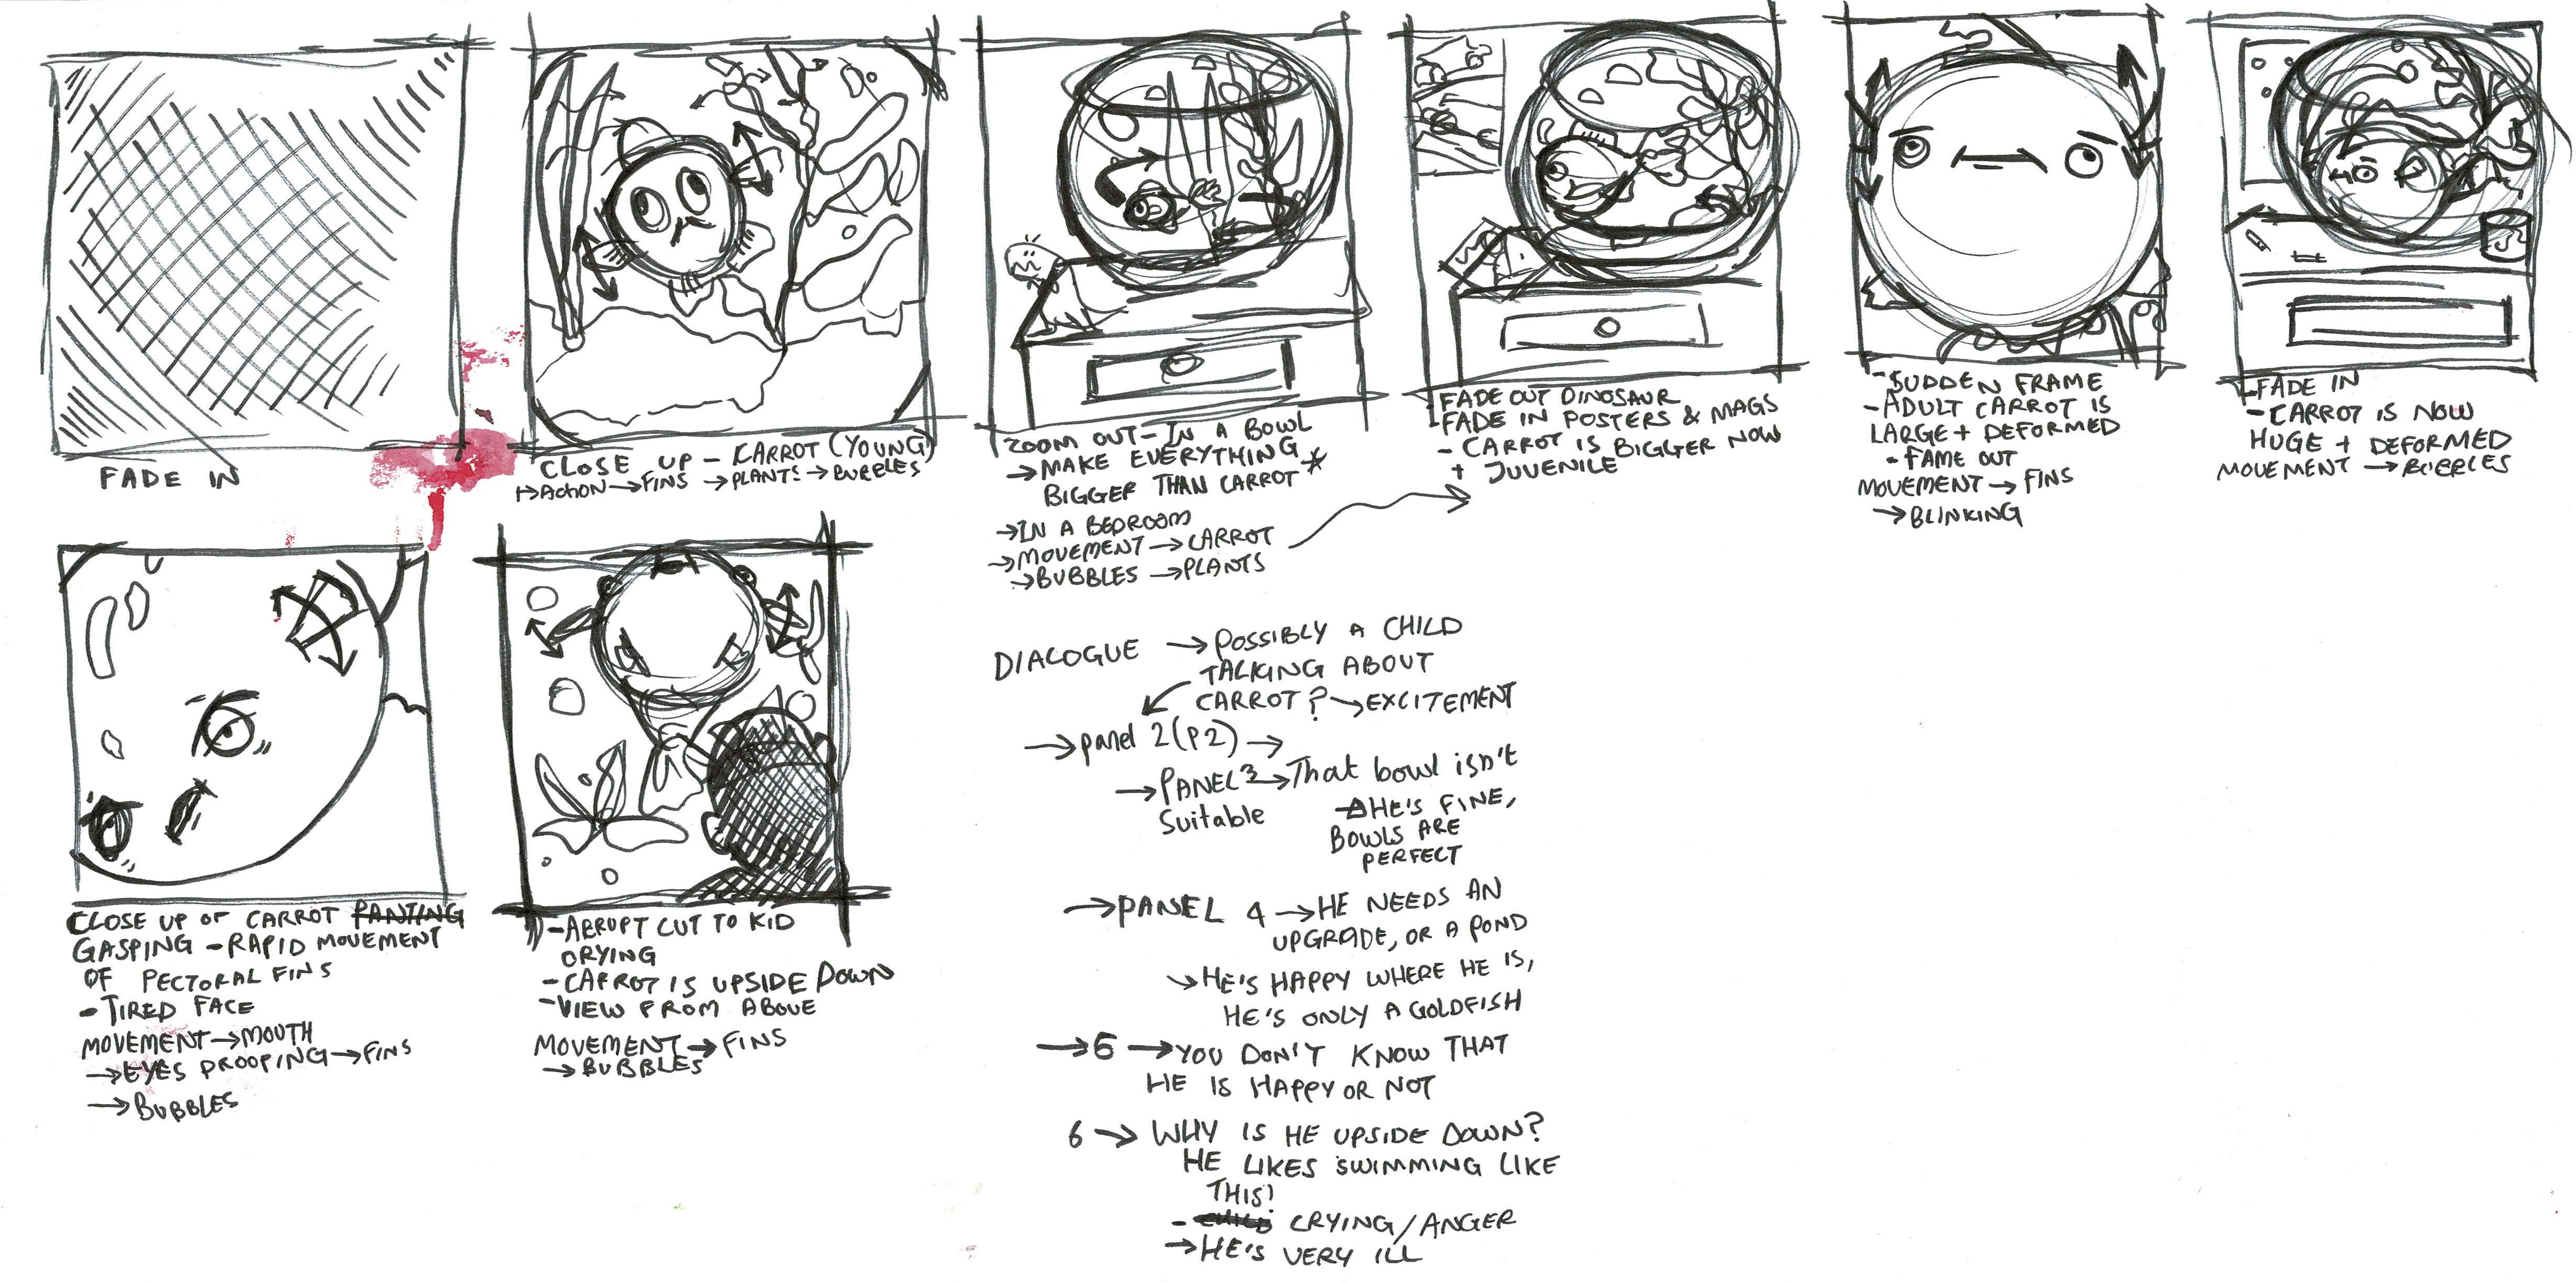 FADE IN
CLOSE UP - CARROT (YOUNG)
↳ACTION→FINS →PLANTS→BUBBLES
ZOOM OUT - IN A BOWL
→MAKE EVERYTHING *
BIGGER THAN CARROT
→IN A BEDROOM
→MOVEMENT→CARROT
→BUBBLES →PLANTS
-FADE OUT DINOSAUR
-FADE IN POSTERS & MAGS
- CARROT IS BIGGER NOW
+ JUVENILE
-SUDDEN FRAME
-ADULT CARROT IS
LARGE + DEFORMED
- FAME OUT
MOVEMENT → FINS
→BLINKING
-FADE IN
-CARROT IS NOW
HUGE + DEFORMED
MOVEMENT →BUBBLES
CLOSE UP OF CARROT PANTING
GASPING - RAPID MOVEMENT
OF PECTORAL FINS
- TIRED FACE
MOVEMENT→MOUTH
→EYES DROOPING→FINS
→BUBBLES
-ABRUPT CUT TO KID
CRYING
-CARROT IS UPSIDE DOWN
-VIEW FROM ABOVE
MOVEMENT→FINS
→BUBBLES
DIALOGUE → POSSIBLY A CHILD
TALKING ABOUT
CARROT?→EXCITEMENT
→panel 2(P2)→
→PANEL 3→That bowl isn't
Suitable
HE'S FINE,
BOWLS ARE
PERFECT
→PANEL 4→HE NEEDS AN
UPGRADE, OR A POND
↘HE'S HAPPY WHERE HE IS,
HE'S ONLY A GOLDFISH
→5→YOU DON'T KNOW THAT
HE IS HAPPY OR NOT
6→ WHY IS HE UPSIDE DOWN?
HE LIKES SWIMMING LIKE
THIS!
- CHILD CRYING/ANGER
→HE'S VERY ILL